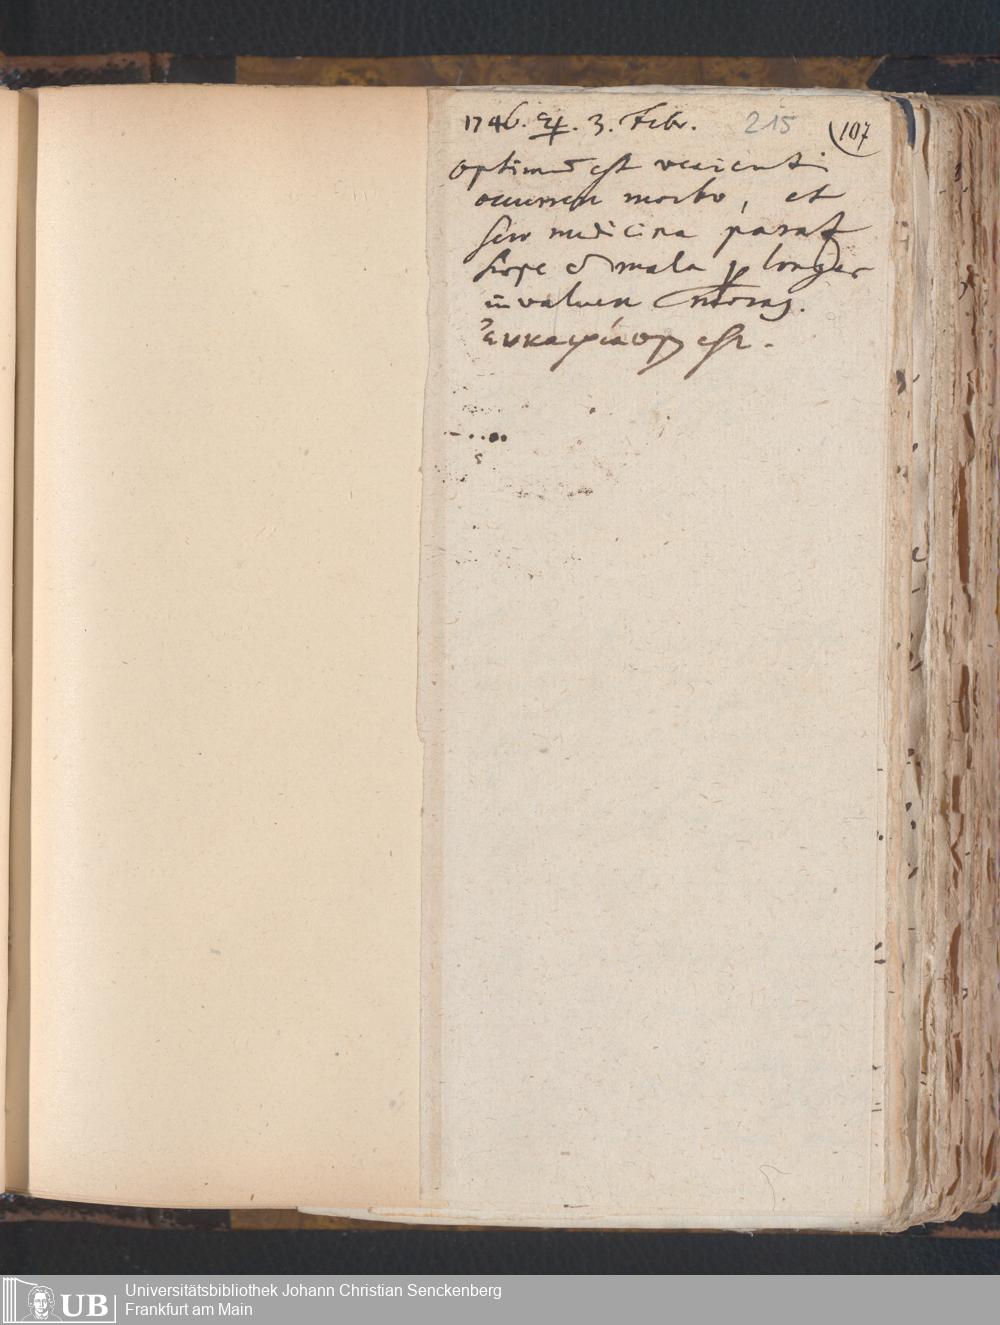 1746. ♃. 3. Febr. 215 107
optimu est venienti
occurrere morbo, et
sero medicina paratur
saepe mala p longas
invaluere moras.
est.
Universitätsbibliothek Johann Christian Senckenberg
Frankfurt am Main
UB